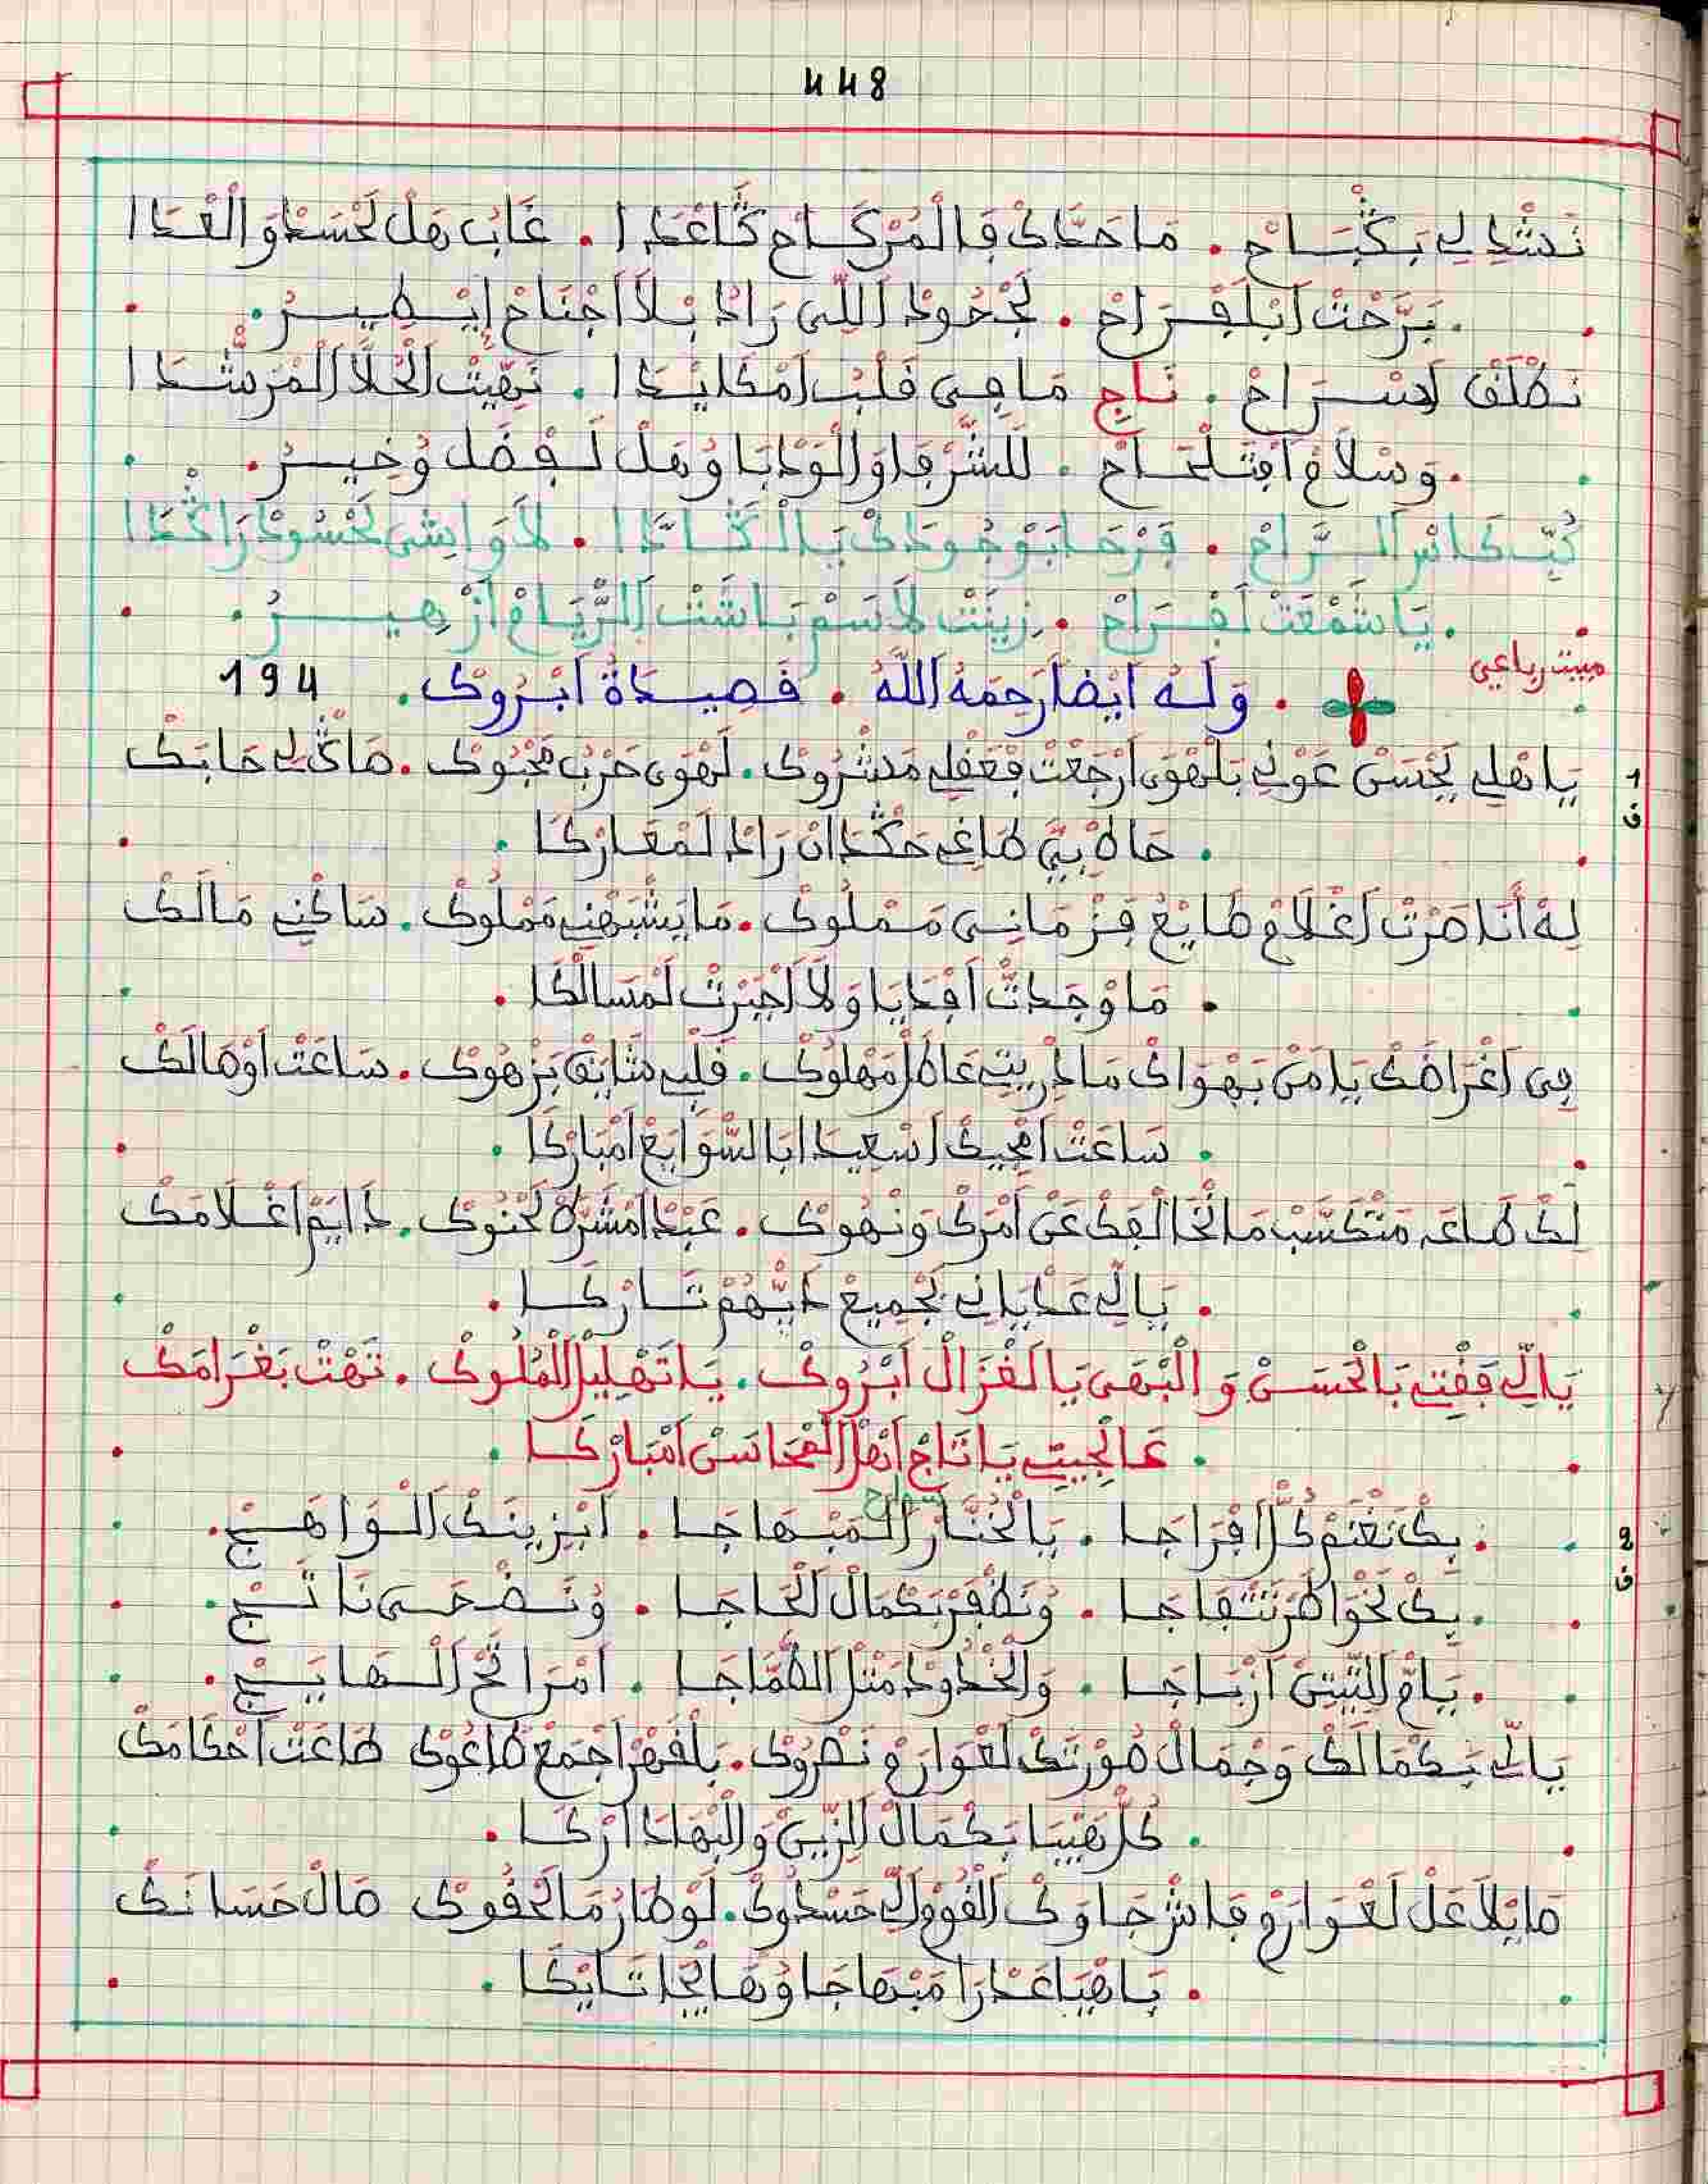 448
نَشْدِ لِي بَكْبَاحْ . مَا حَدَّاكْ فَالْمُرْكَاحْ كَّاعْدَا . غَابْ هَلْ لَحْسَدْ وَالْعْدَا
. بَرَّحْتْ اَبْلَفْرَاحْ . لَجْحُودْ اَللِّي رَادْ بْلاَ اجْنَاحْ اِيْطِيرْ .
نَطْلَقْ اَسْرَاحْ . نَاجِ مَا فِي قَلْبْ اَمْكَايْدَا . نَهِّيْتْ اَلْخُلاَّ الْمَرْشْدَا
. وَسْلاَمْ اَفْتَلْمَاحْ . لَلشُّرْفَا وَالْوَدْبَا وُهَلْ لَفْضَلْ وُخِيرْ .
كُبّْ كَاسْ اَلرَّاحْ . فَرْحَا بَوْجُودَكْ يَا الْكَّادَّا . لاَ وَاشِي لَحْسُودْ رَاكْدَا
. يَا شَمْعَتْ لَفْرَاحْ . زِينَتْ لاَسَمْ بَاشَتْ اَلرْيَامْ اَزْهِيرْ .
مبيت رباعي
. وَلَهُ اَيْضاً رَحِمَهُ اَللَّهُ . قَصِيدَةُ اَبْرُوكْ . 194
1
ف
يَا هْلِي لَحْسَنْ عَوْنِي بَلْهْوَى اَرْجَعْتْ فْعَقْلِي مَشْرُوكْ . لَهْوَى حَرْبْ مَحْبُوكْ . صَاكّْ لِي حَابَكْ
. حَاطْ بِيَّ طَاغِي حَكْدَانْ رَادْ لَمْعَارْكَا .
لِهْ اَنَا صَرْتْ اَغْلاَمْ طَايْعْ فِزْمَانِي مَمْلُوكْ . مَا يْشَبَهْنِي مَمْلُوكْ . سَاكْنِي مَالَكْ
. مَا وْجَدْتْ اَفْدَايَا وَلاَ اَجْبَرْتْ لَمْسَالْكَا .
فِي اَغْرَاضَكْ يَا مَنْ بَهْوَاكْ مَا دْرِيتِي عَاطَلْ مَهْلُوكْ . قَلْبِي شَايَقْ بَزْهُوكْ . سَاعَتْ اَوْصَالَكْ
. سَاعَتْ اَمْجِيكْ اَسْعِيدَا اَبَا السّْوَايَعْ اَمْبَارْكَا .
لَكْ طَاعَه مَتْكَسَّبْ مَا نْخَالْفَكْ عَنْ اَمْرَكْ وَنْهُوكْ . عَبْدْ اَمْشَرَّطْ لَحْنُوكْ . دَايَمْ اَغْلاَمَكْ
. يَا لِّي عَدْيَانِي لَجْمِيعْ دَيّْهُمْ تَارْكَا .
يَا لِّي فَقْتِي بَالْحَسَنْ وَالْبْهَى يَا لَغْزَالْ اَبْرُوكْ . يَا تَهْلِيلْ اَلْمْلُوكْ . تَهْتْ بَغْرَامَكْ
. عَالْجِيتِي يَا تَاجْ اَهْلْ اَلْمْحَاسَنْ اَمْبَارْكَا .
سوارح
2
ف
. بِكْ نَغْنَمْ كُلّْ اَفْرَاجَا . يَا لْخُنَّارْ اَلْمَبْهَاجَا . اَبْزِينَكْ اَلْوَاهَجْ .
. بِكْ لَخْوَاطَرْ نَتْفَاجَا . وُنَظْفَرْ بَكْمَالْ الْحَاجَا . وُنَضْحَى نَاتَجْ .
. يَامّْ اَلتِّيتِينْ اَزْبَاجَا . وَالْخْدُودْ مَتْلْ اَلطّْمَاجَا . اَمْرَاتَحْ اَلْهَايَجْ .
يَا لِّي بَكْمَالَكْ وَجْمَالْ صُورْتَكْ لَعْوَارَمْ نَصْرُوكْ . بَلْقَهْرْ اَجْمَعْ طَاعُوكْ طَاعَتْ اَحْكَامَكْ
. كُلّْ هَيْبَا بَكْمَالْ اَلزِّينْ وَالْبْهَا دَارْكَا .
صَايْلاَ عَلْ لَعْوَارَمْ فَاشْ جَاوَكْ الْقُومْ اَلِّي حَسْدُوكْ . لَوْ طَارُ مَا لَحْقُوكْ صَالْ حَسَانَكْ
. يَا هْيَا عَدْرَا مَبْهَاجَا وُهَايْجَا تَايْكَا .